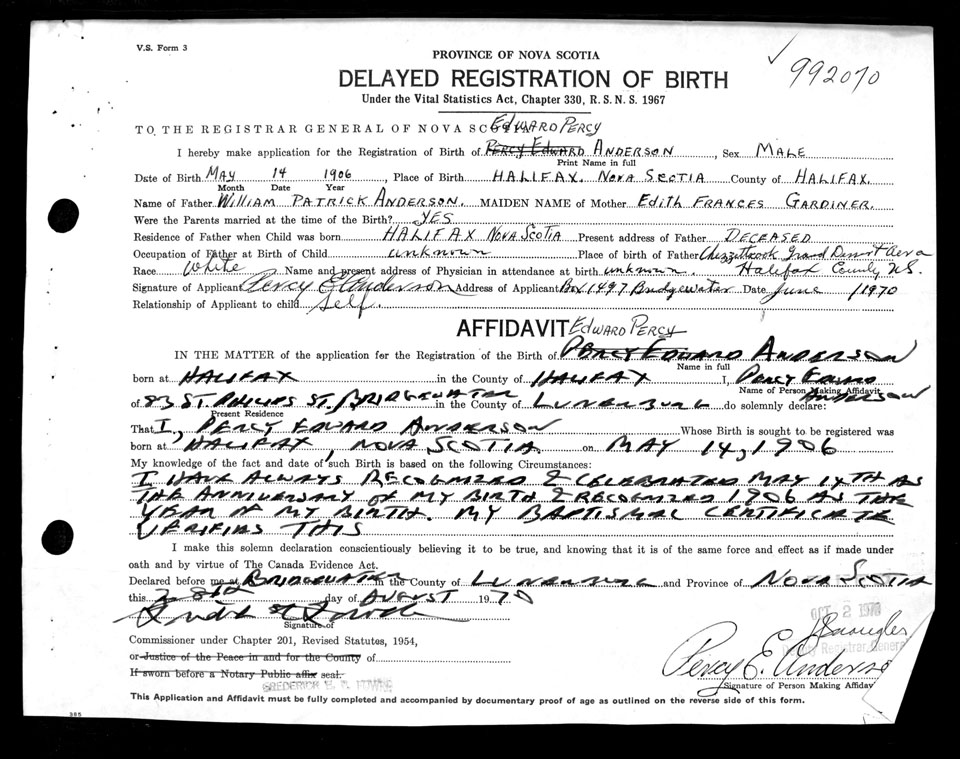 V.S. Form 3
PROVINCE OF NOVA SCOTIA
992070
DELAYED REGISTRATION OF BIRTH
Under the Vital Statistics Act, Chapter 330, R.S.N.S. 1967
EDWARD PERCY
TO THE REGISTRAR GENERAL OF NOVA SCOTIA
I hereby make application for the Registration of Birth of PERCY EDWARD ANDERSON, Sex MALE
Print Name in full
Date of Birth MAY 14 1906, Place of Birth HALIFAX. NOVA SCOTIA County of HALIFAX.
Month Date Year
Name of Father WILLIAM PATRICK ANDERSON. MAIDEN NAME of Mother EDITH FRANCES GARDINER.
Were the Parents married at the time of the Birth? YES
Residence of Father when Child was born HALIFAX NOVA SCOTIA Present address of Father DECEASED
Occupation of Father at Birth of Child unknown Place of birth of Father Chezzetcook Grand Desert Area
Race White Name and present address of Physician in attendance at birth unknown. Halifax County N.S.
Signature of Applicant Percy E Anderson Address of Applicant Box 1497 Bridgewater Date June / 1970
Relationship of Applicant to child self.
AFFIDAVIT EDWARD PERCY
IN THE MATTER of the application for the Registration of the Birth of PERCY EDWARD ANDERSON
Name in full
born at HALIFAX in the County of HALIFAX I, PERCY EDWARD
Name of Person Making Affidavit
ANDERSON
of 83 ST. PHILIPS ST. BRIDGEWATER in the County of LUNENBURG do solemnly declare:
Present Residence
That I, PERCY EDWARD ANDERSON Whose Birth is sought to be registered was
born at HALIFAX, NOVA SCOTIA on MAY 14, 1906
My knowledge of the fact and date of such Birth is based on the following Circumstances:
I HAVE ALWAYS RECOGNIZED & CELEBRATED MAY 14TH AS
THE ANNIVERSARY OF MY BIRTH & RECOGNIZED 1906 AS THE
YEAR OF MY BIRTH. MY BAPTISMAL CERTIFICATE
VERIFIES THIS
I make this solemn declaration conscientiously believing it to be true, and knowing that it is of the same force and effect as if made under
oath and by virtue of The Canada Evidence Act.
Declared before me at BRIDGEWATER in the County of LUNENBURG and Province of NOVA SCOTIA
this 28th day of AUGUST 1970
OCT 2 1970
Signature of
Deputy Registrar General
Commissioner under Chapter 201, Revised Statutes, 1954,
or Justice of the Peace in and for the County of
Percy E. Anderson
If sworn before a Notary Public affix seal.
Signature of Person Making Affidavit
This Application and Affidavit must be fully completed and accompanied by documentary proof of age as outlined on the reverse side of this form.